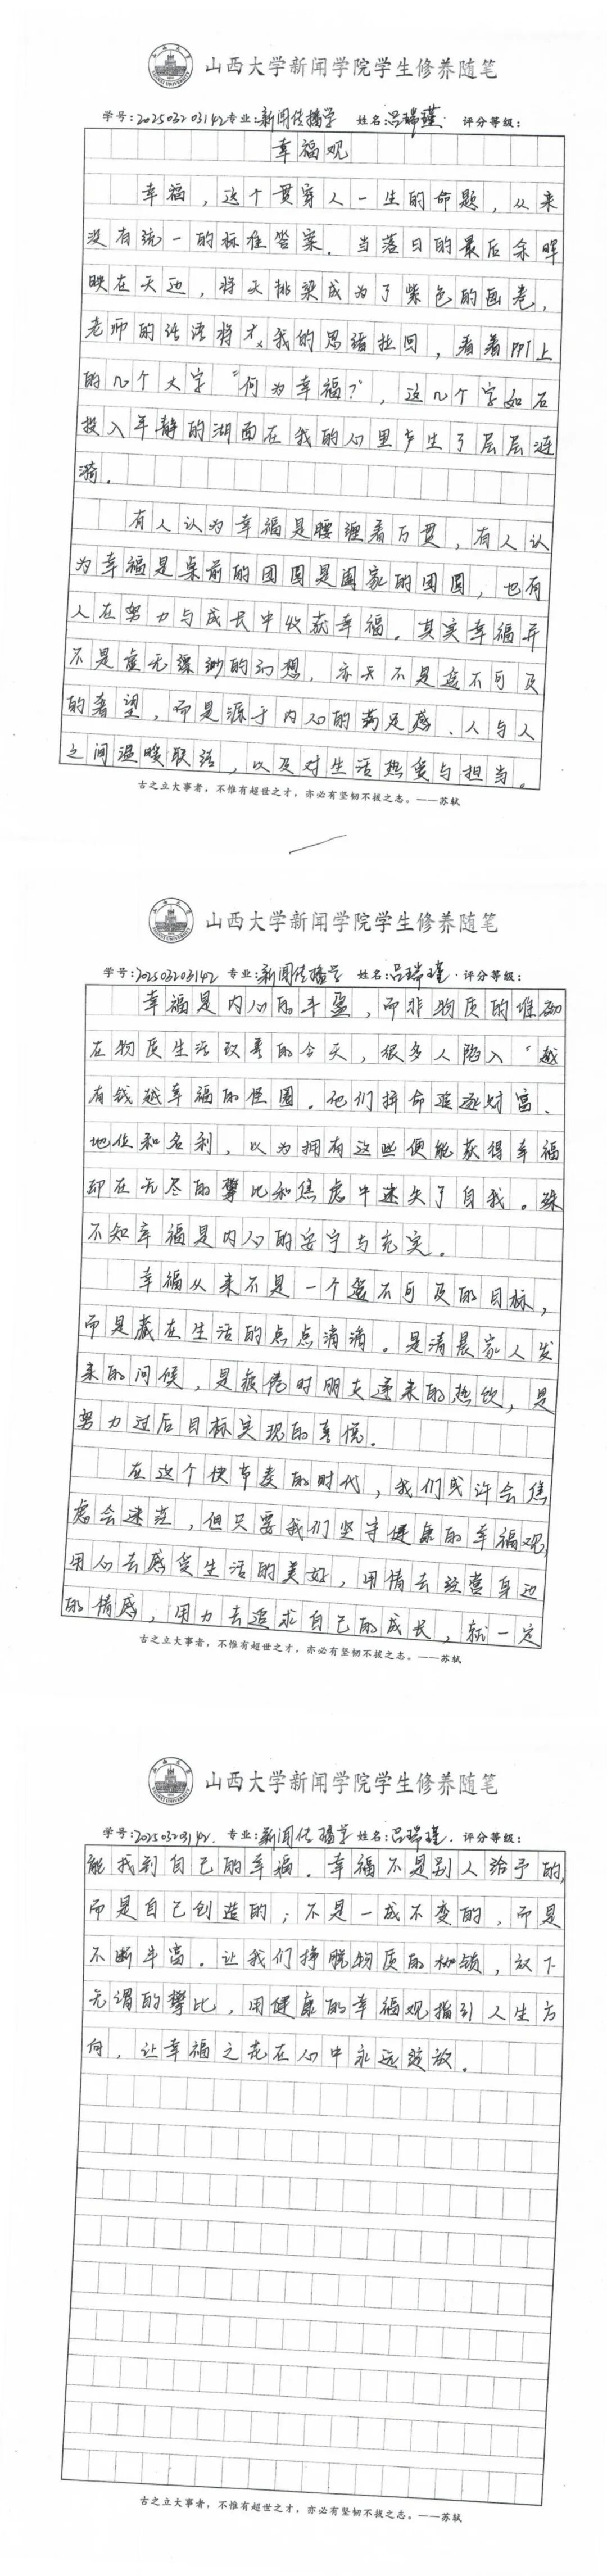 山西大学新闻学院学生修养随笔
学号:2025032 03142 专业:新闻传播学 姓名:吕瑞瑾. 评分等级:
幸福观
幸福，这个贯穿人一生的命题，从来
没有统一的标准答案. 当落日的最后余晖
映在天边，将天挑染成为了紫色的画卷，
老师的话语将我的思绪拉回，看着PPT上
的几个大字“何为幸福?”，这几个字如石
投入平静的湖面在我的心里产生了层层涟
漪.
有人认为幸福是腰缠着万贯，有人认
为幸福是桌前的团圆是阖家的团圆，也有
人在努力与成长中收获幸福。其实幸福并
不是虚无缥缈的幻想，亦不是遥不可及
的奢望，而是源于内心的满足感、人与人
之间温暖联结，以及对生活热爱与担当。
古之立大事者，不惟有超世之才，亦必有坚韧不拔之志。——苏轼
山西大学新闻学院学生修养随笔
学号:202503203142 专业:新闻传播学 姓名:吕瑞瑾. 评分等级:
幸福是内心的丰盈，而非物质的堆砌
在物质生活改善的今天，很多人陷入“越
有钱越幸福的怪圈。他们拼命追逐财富、
地位和名利，以为拥有这些便能获得幸福
却在无尽的攀比和焦虑中迷失了自我。殊
不知幸福是内心的安宁与充实。
幸福从来不是一个遥不可及的目标，
而是藏在生活的点点滴滴。是清晨家人发
来的问候，是疲倦时朋友递来的热饮，是
努力过后目标实现的喜悦.
在这个快节奏的时代，我们或许会焦
虑会迷茫，但只要我们坚守健康的幸福观，
用心去感受生活的美好，用情去经营身边
的情感，用力去追求自己的成长，就一定
古之立大事者，不惟有超世之才，亦必有坚韧不拔之志。——苏轼
山西大学新闻学院学生修养随笔
学号:202503203142. 专业:新闻传播学 姓名:吕瑞瑾. 评分等级:
能找到自己的幸福。幸福不是别人给予的，
而是自己创造的；不是一成不变的，而是
不断丰富。让我们挣脱物质的枷锁，放下
无谓的攀比，用健康的幸福观指引人生方
向，让幸福之花在心中永远绽放。
古之立大事者，不惟有超世之才，亦必有坚韧不拔之志。——苏轼